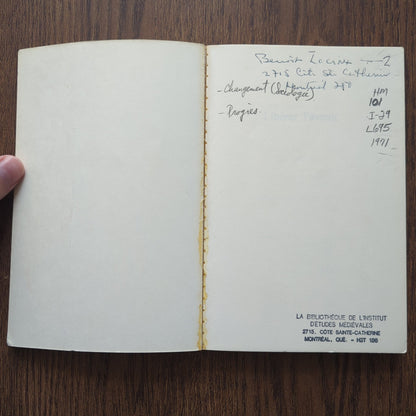 Benoît Lacroix
2715 Côte Ste Catherine
Montréal 250
- Changement (Sociologie)
- Progrès
HM
101
I-29
L695
1971
Libérer l'avenir
LA BIBLIOTHÈQUE DE L'INSTITUT
D'ÉTUDES MÉDIÉVALES
2715, CÔTE SAINTE-CATHERINE
MONTRÉAL, QUÉ. - H3T 1B6